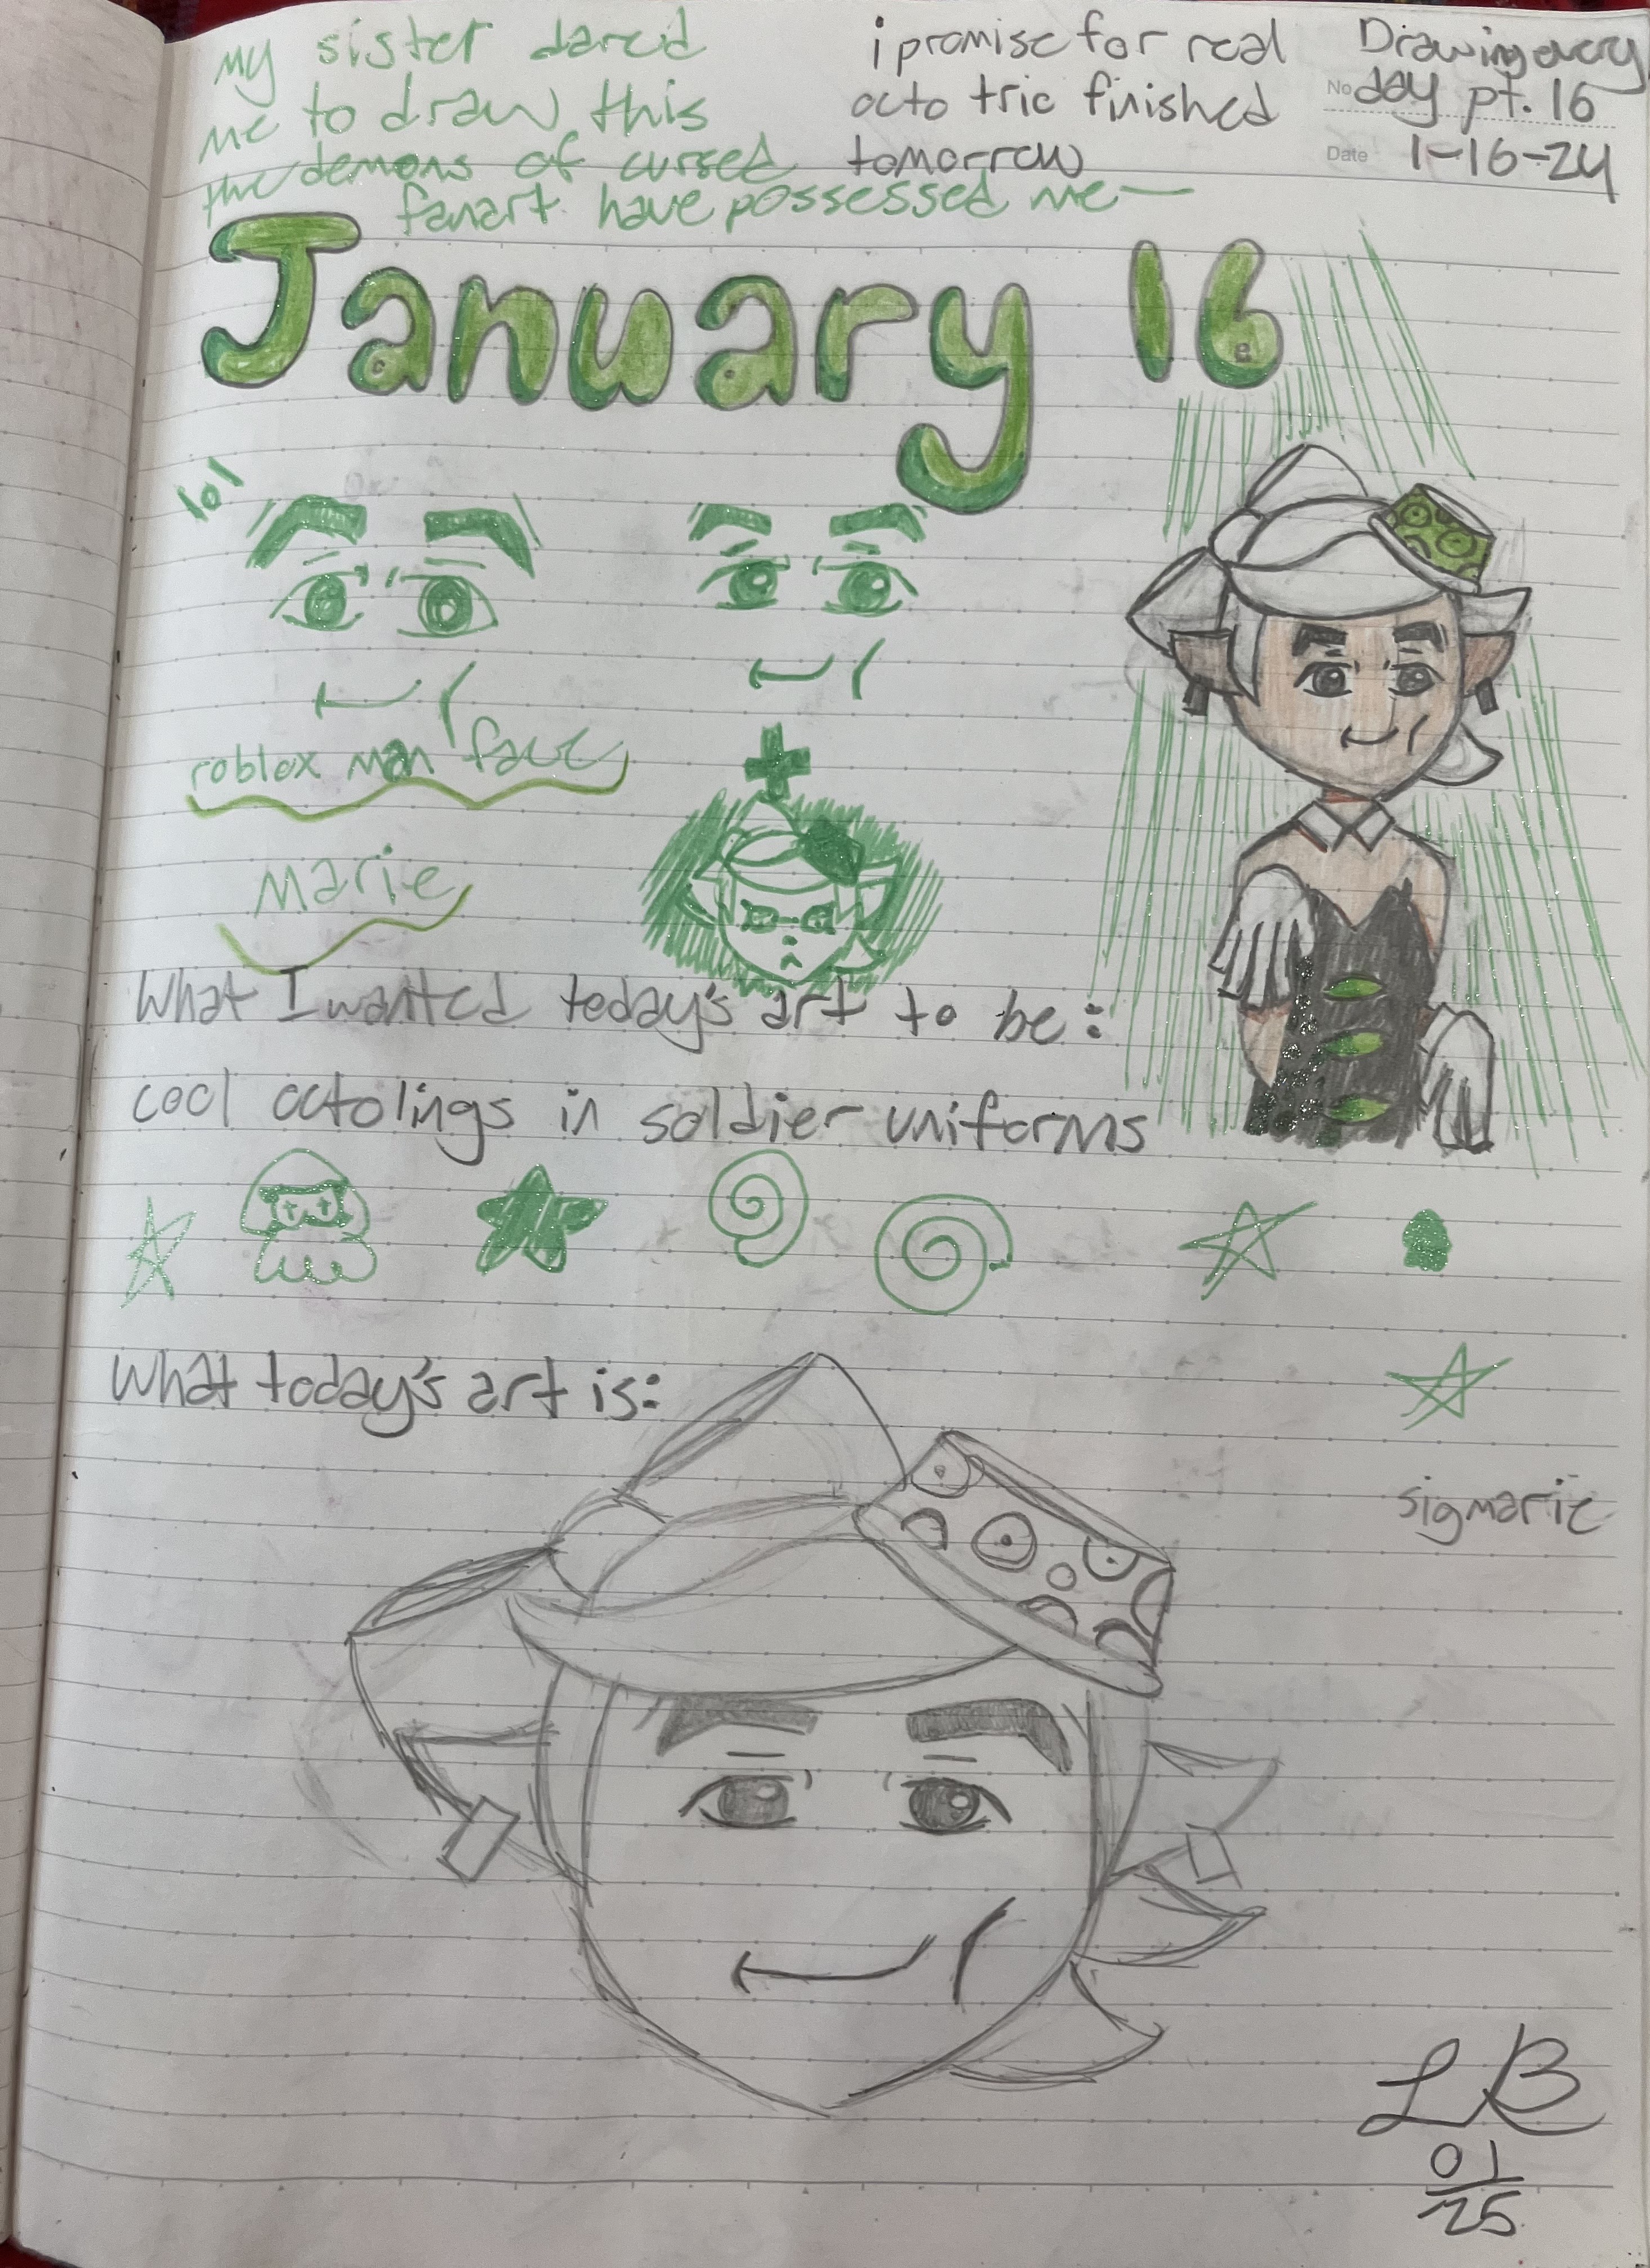 my sister dared
me to draw this
the demons of cursed
fanart have possessed me—
i promise for real
octo trio finished
tomorrow
Drawing every
No day pt. 16
Date 1-16-24
January 16
lol
roblox man face
+
Marie
What I wanted today's art to be:
cool octolings in soldier uniforms
What today's art is:
sigmarie
LB
01
25